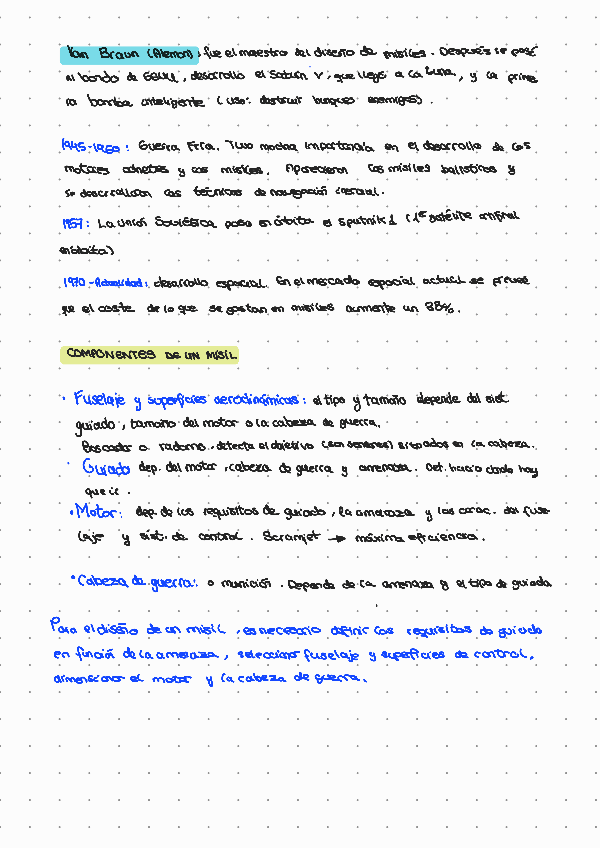 Van Braun (Alemán), fue el maestro del diseño de misiles. Después se pasó
al bando de EEUU, desarrollo el Saturn V, que llegó a la Luna, y la prime
ra bomba inteligente (uso: destruir buques enemigos).
1945-1980: Guerra Fría. Tuvo mucha importancia en el desarrollo de los
motores cohetes y los misiles. Aparecieron los misiles balísticos y
se desarrollaron las técnicas de navegación inercial.
1957: La Unión Soviética pone en órbita el Sputnik 1 (1er satélite artificial
en órbita)
1970-Actualidad: desarrollo espacial. En el mercado espacial actual se prevee
que el coste de lo que se gastan en misiles aumente un 88%.
COMPONENTES DE UN MISIL
· Fuselaje y superficies aerodinámicas: el tipo y tamaño depende del sist.
guiado, tamaño del motor o la cabeza de guerra.
Buscador o radomo, detecta el objetivo (son sensores) situados en la cabeza.
· Guiado dep. del motor, cabeza de guerra y amenaza. Det. hacia donde hay
que ir.
· Motor: dep. de los requisitos de guiado, la amenaza y las carac. del fuse-
laje y sist. de control. Scramjet → máxima eficiencia.
· Cabeza de guerra: o munición. Depende de la amenaza y el tipo de guiado
Para el diseño de un misil, es necesario definir los requisitos de guiado
en función de la amenaza, seleccionar fuselaje y superficies de control,
dimensionar el motor y la cabeza de guerra.